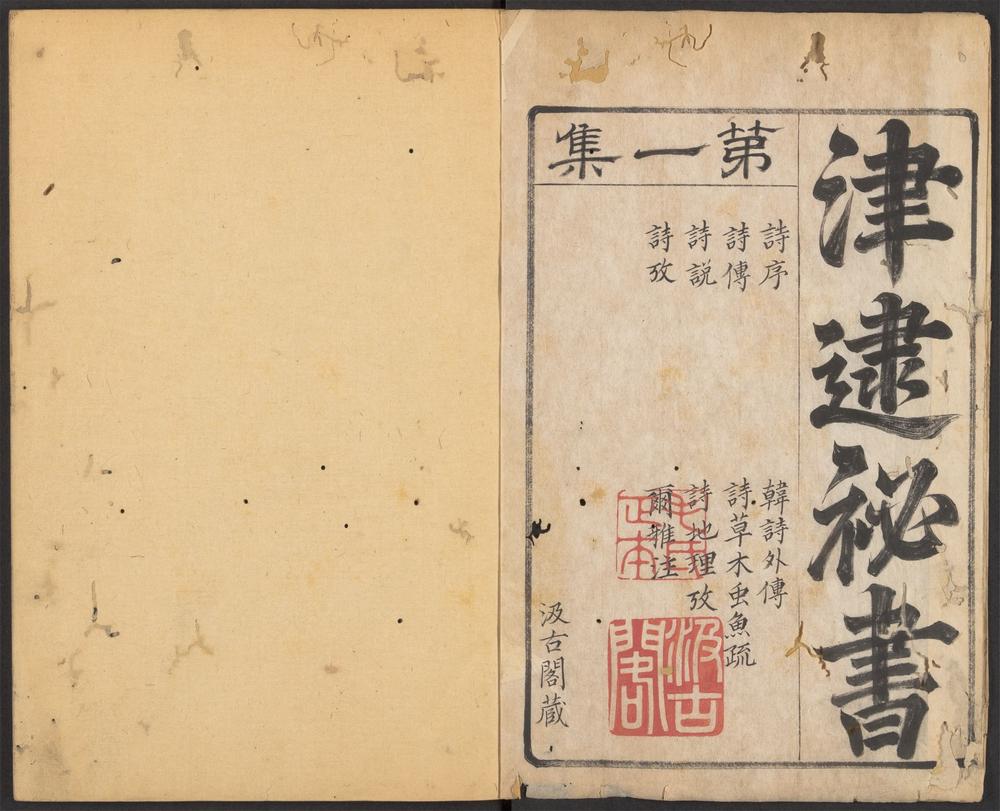 津逮秘書
第一集
詩序
詩傳
詩説
詩攷
韓詩外傳
詩草木虫魚疏
詩地理攷
爾雅注
汲古閣蔵
毛氏正本
汲古閣